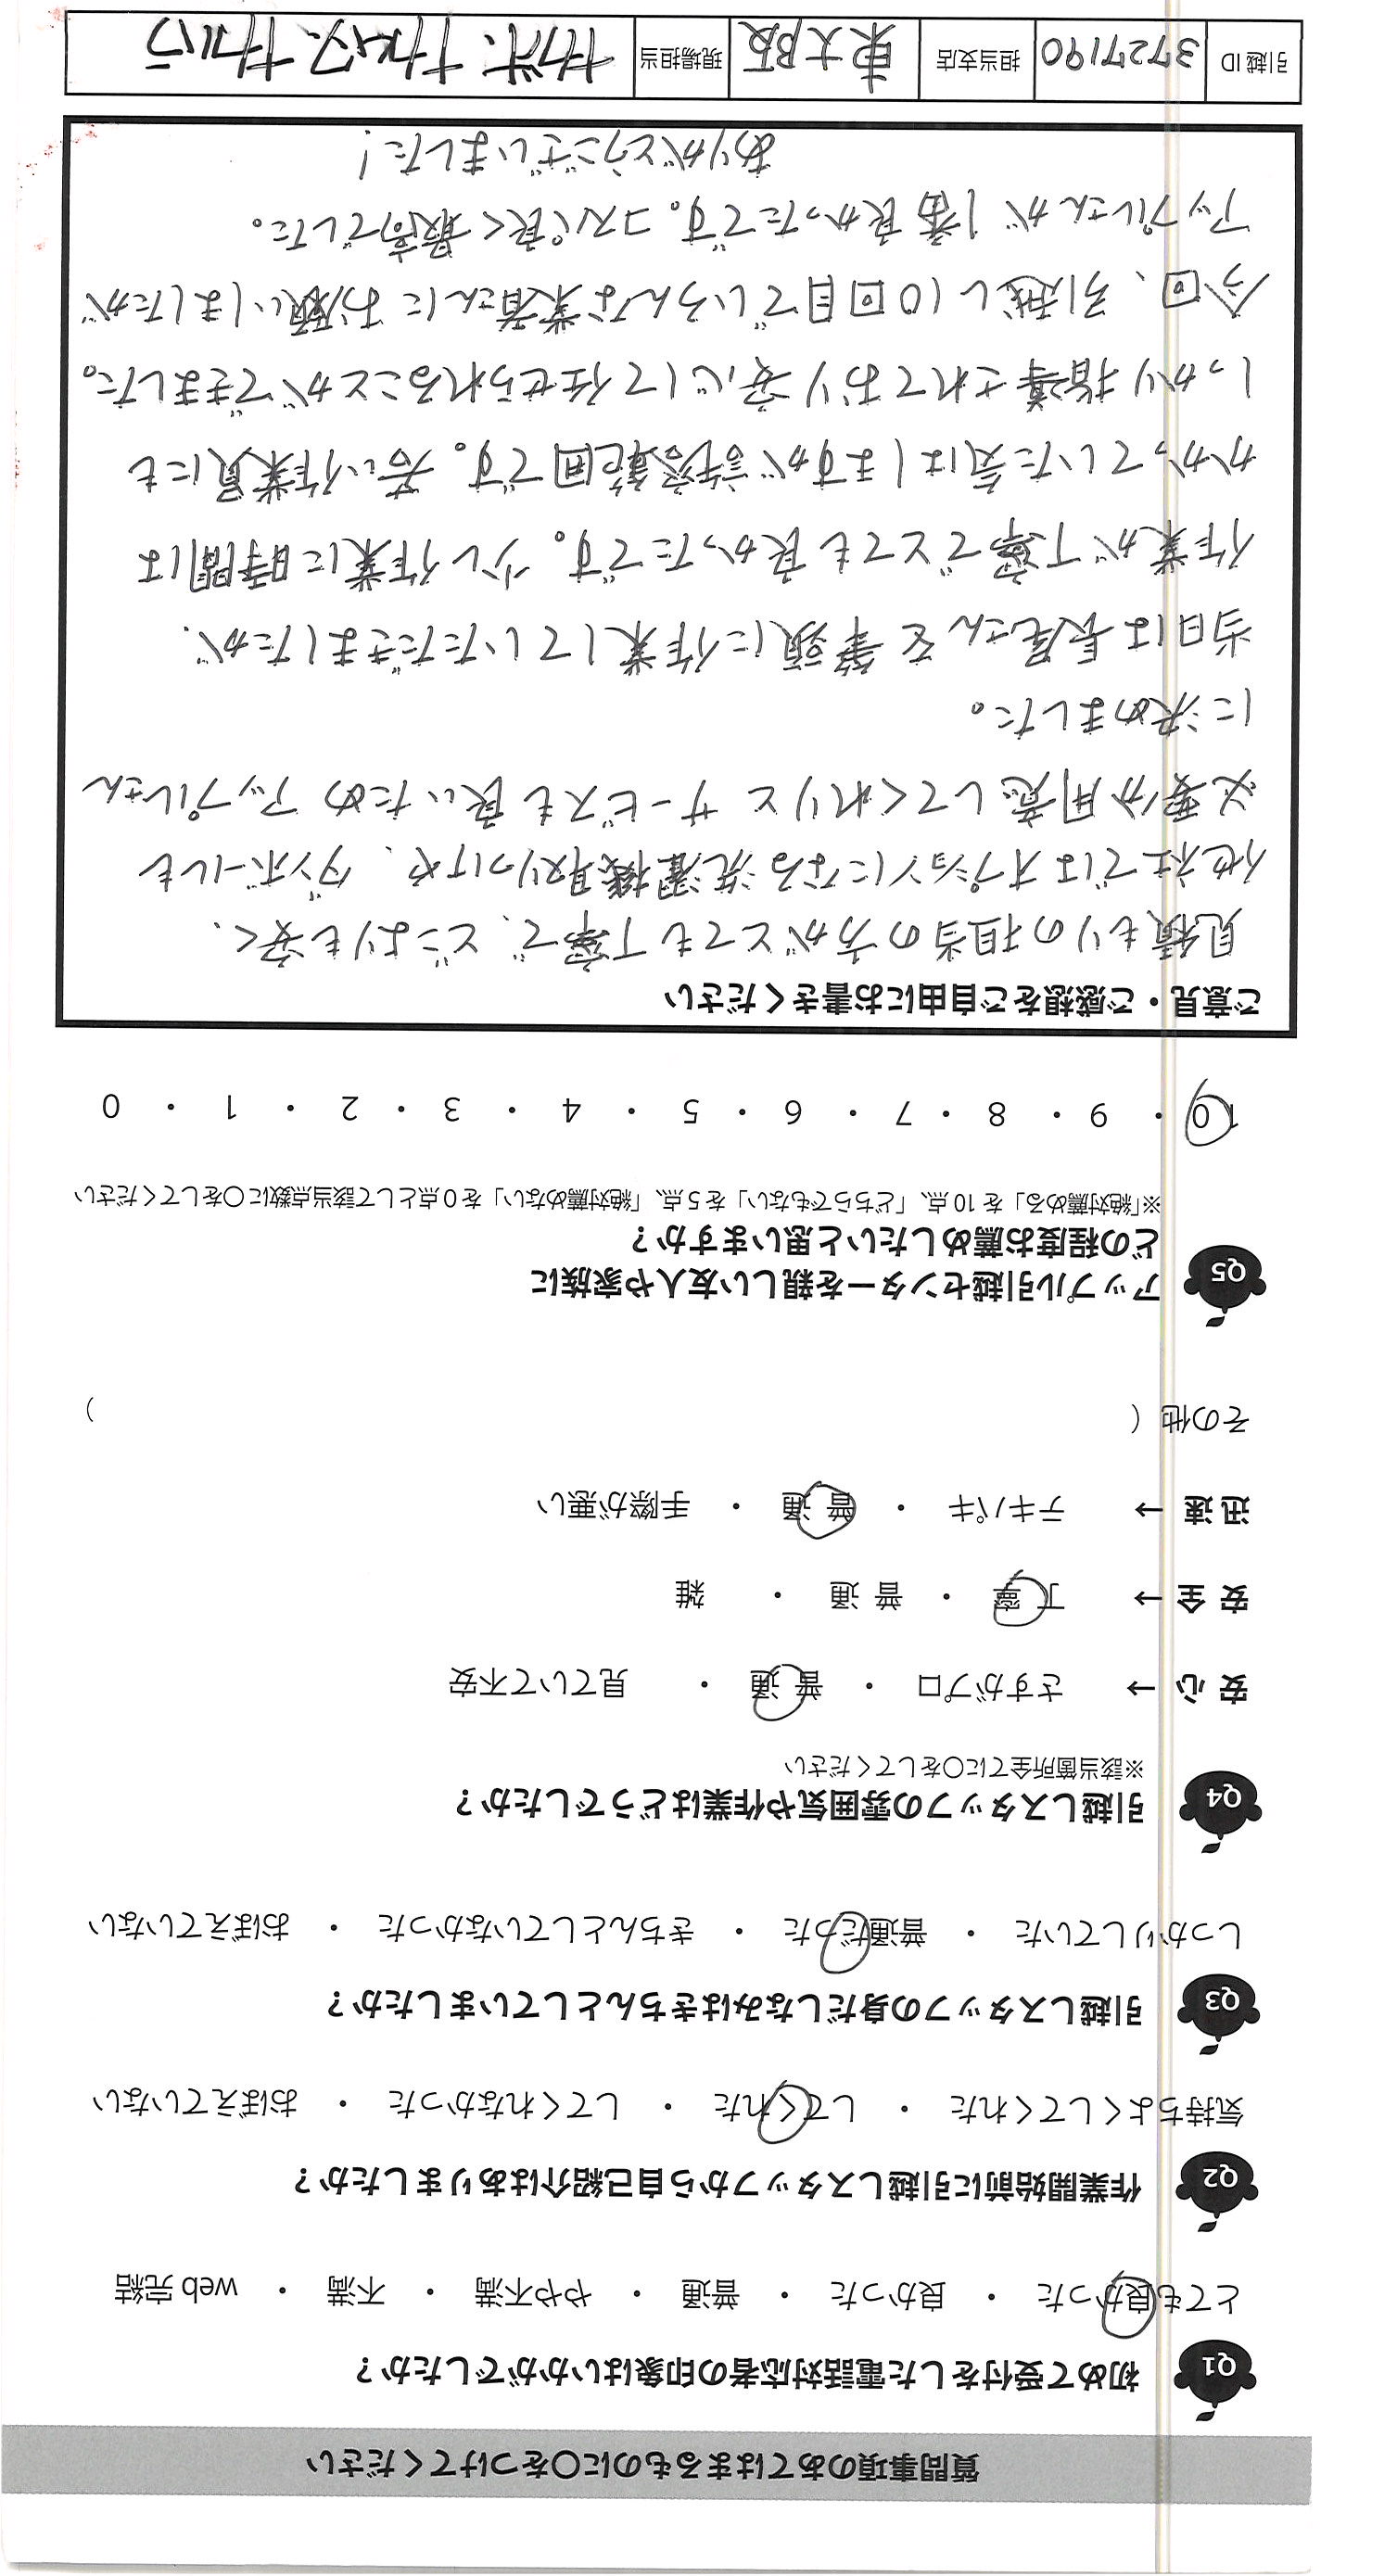 質問事項のあてはまるものに〇をつけてください
Q1 初めて受付をした電話対応者の印象はいかがでしたか？
とても良かった ・ 良かった ・ 普通 ・ やや不満 ・ 不満 ・ web 完結
Q2 作業開始前に引越しスタッフから自己紹介はありましたか？
気持ちよくしてくれた ・ してくれた ・ してくれなかった ・ おぼえていない
Q3 引越しスタッフの身だしなみはきちんとしていましたか？
しっかりしていた ・ 普通だった ・ きちんとしていなかった ・ おぼえていない
Q4 引越しスタッフの雰囲気や作業はどうでしたか？
※該当箇所全てに〇をしてください
安 心 → さすがプロ ・ 普 通 ・ 見ていて不安
安 全 → 丁 寧 ・ 普 通 ・ 雑
迅 速 → テキパキ ・ 普 通 ・ 手際が悪い
その他 ( )
Q5 アップル引越センターを親しい友人や家族に
どの程度お薦めしたいと思いますか？
※「絶対薦める」を 10 点、「どちらでもない」を 5 点、「絶対薦めない」を 0 点として該当点数に〇をしてください
10 ・ 9 ・ 8 ・ 7 ・ 6 ・ 5 ・ 4 ・ 3 ・ 2 ・ 1 ・ 0
ご意見・ご感想をご自由にお書きください
見積もりの担当の方がとても丁寧で、どこよりも安く、
他社ではオプションになる洗濯機取りつけや、ダンボールも
必要分用意してくれりと サービスも良いため アップルさん
に決めました。
当日は長尾さんを筆頭に作業していただきましたが、
作業が丁寧でとても良かったです。少し作業に時間は
かかっていた気はしますが許容範囲です。若い作業員にも
しっかり指導されており安心して任せられることができました。
今回、引越し10回目でいろんな業者さんにお願いしましたが
アップルさんが1番良かったです。コスパ良く最高でした。
ありがとうございました！
引越 ID 3727190 担当支店 東大阪 現場担当